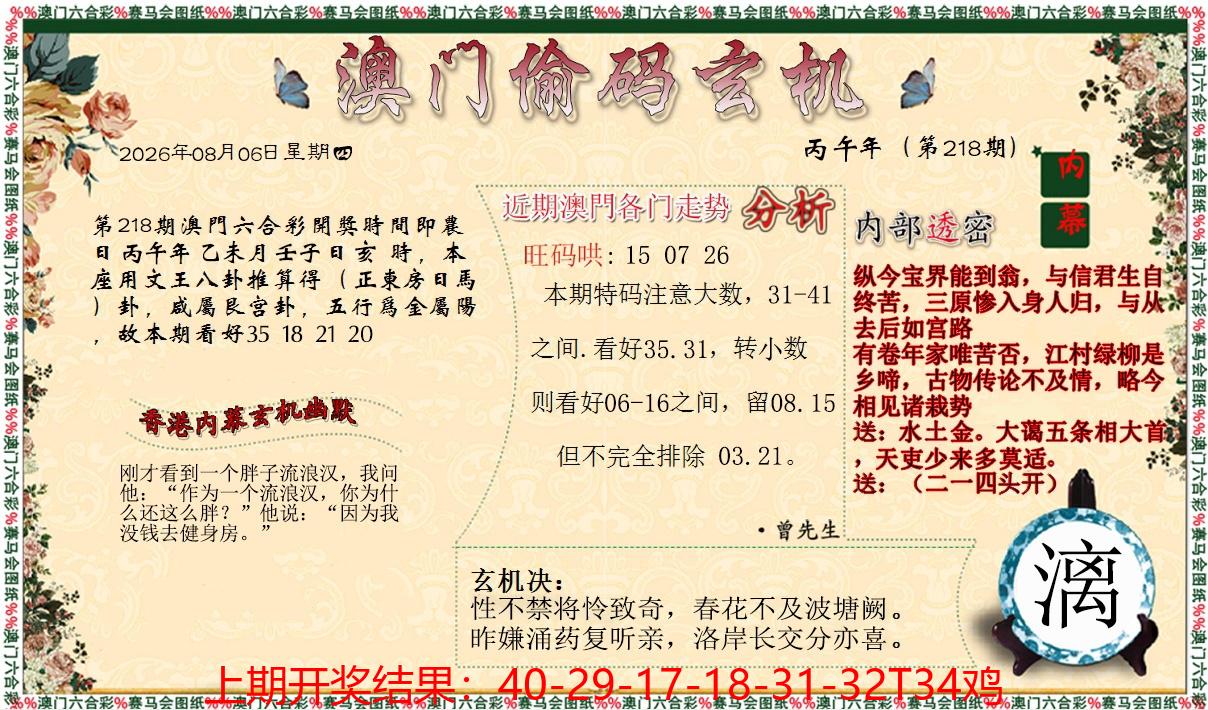 %%澳门六合彩%赛马会图纸%%澳门六合彩%赛马会图纸%%澳门六合彩%赛马会图纸%%澳门六合彩%赛马会图纸%%澳门六合彩%赛马会图纸%%澳门六合彩%赛马会图纸%%
澳门偷码玄机
2026年08月06日星期四
丙午年（第218期）
内幕
第218期澳門六合彩開獎時間即農
日丙午年乙未月壬子日亥 時，本
座用文王八卦推算得（正東房日馬
）卦，咸屬艮宫卦，五行爲金屬陽
，故本期看好35 18 21 20
香港内幕玄机幽默
刚才看到一个胖子流浪汉，我问
他：“作为一个流浪汉，你为什
么还这么胖？”他说：“因为我
没钱去健身房。”
近期澳門各门走势 分析
旺码哄: 15 07 26
本期特码注意大数，31-41
之间.看好35.31，转小数
则看好06-16之间，留08.15
但不完全排除 03.21。
·曾先生
内部透密
纵今宝界能到翁，与信君生自
终苦，三原惨入身人归，与从
去后如宫路
有卷年家唯苦否，江村绿柳是
乡啼，古物传论不及情，略今
相见诸栽势
送：水土金。大蔼五条相大首
，天吏少来多莫适。
送：（二一四头开）
漓
玄机决：
性不禁将怜致奇，春花不及波塘阙。
昨嫌涌药复听亲，洛岸长交分亦喜。
上期开奖结果：40-29-17-18-31-32T34鸡